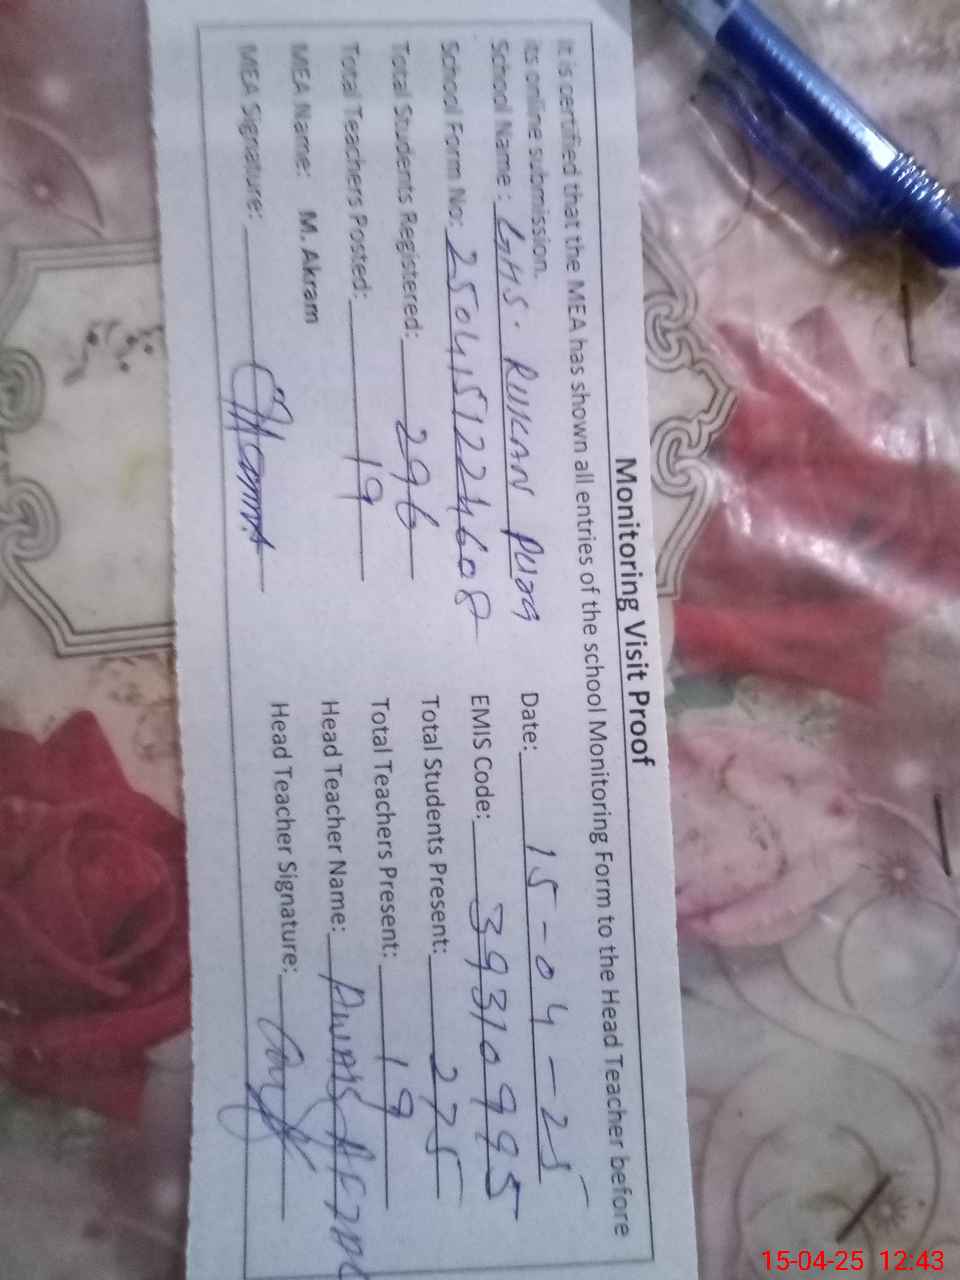 Monitoring Visit Proof
It is certified that the MEA has shown all entries of the school Monitoring Form to the Head Teacher before
its online submission.
School Name: GHS. RUKAN PURA Date: 15-04-25
School Form No: 2504151224608 EMIS Code: 39310995
Total Students Registered: 296 Total Students Present: 275
Total Teachers Posted: 19 Total Teachers Present: 19
MEA Name: M. Akram Head Teacher Name:
MEA Signature: Head Teacher Signature:
15-04-25 12:43